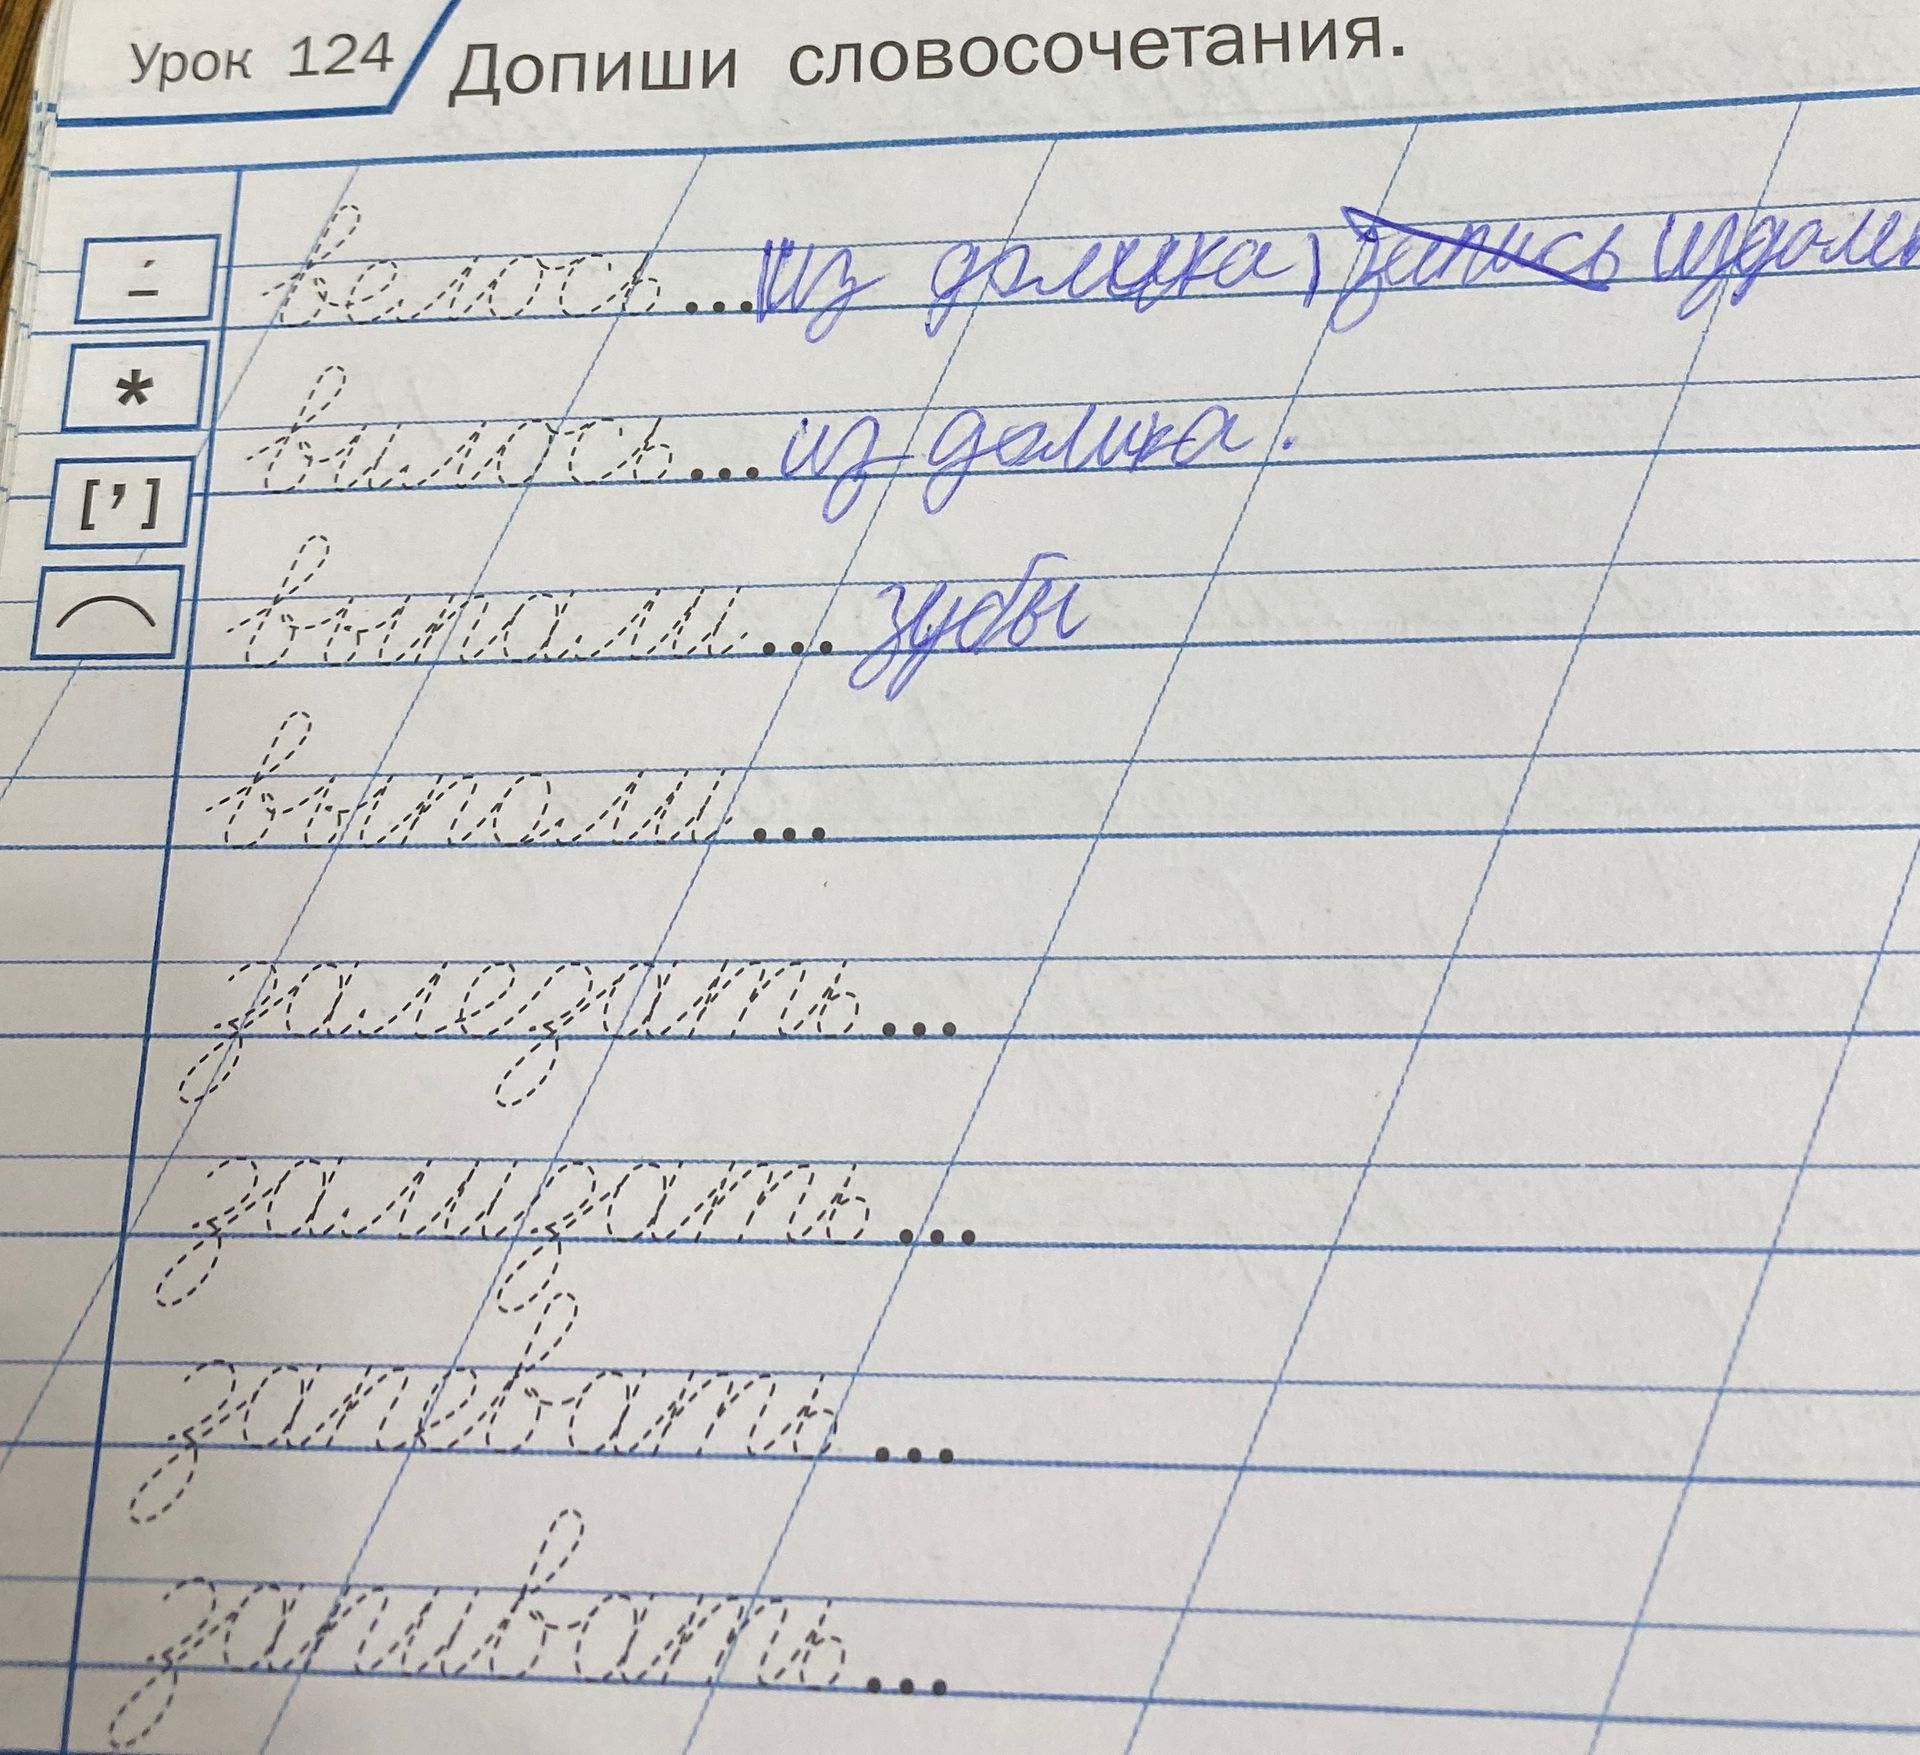 Урок 124 Допиши словосочетания.
велось... из домика, запись издоми
*
вилось... из домика.
[']
выпали... зубы
выполи...
залезать...
зализать...
запевать...
запивать...